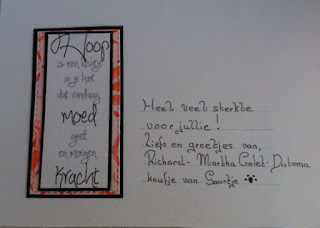 Hoop
is een licht
in je hart
dat vandaag
moed
geeft
en morgen
kracht
Heel veel sterkte
voor jullie!
Liefs en groetjes van,
Richard - Martha Colet - Dutema
knufje van Saartje